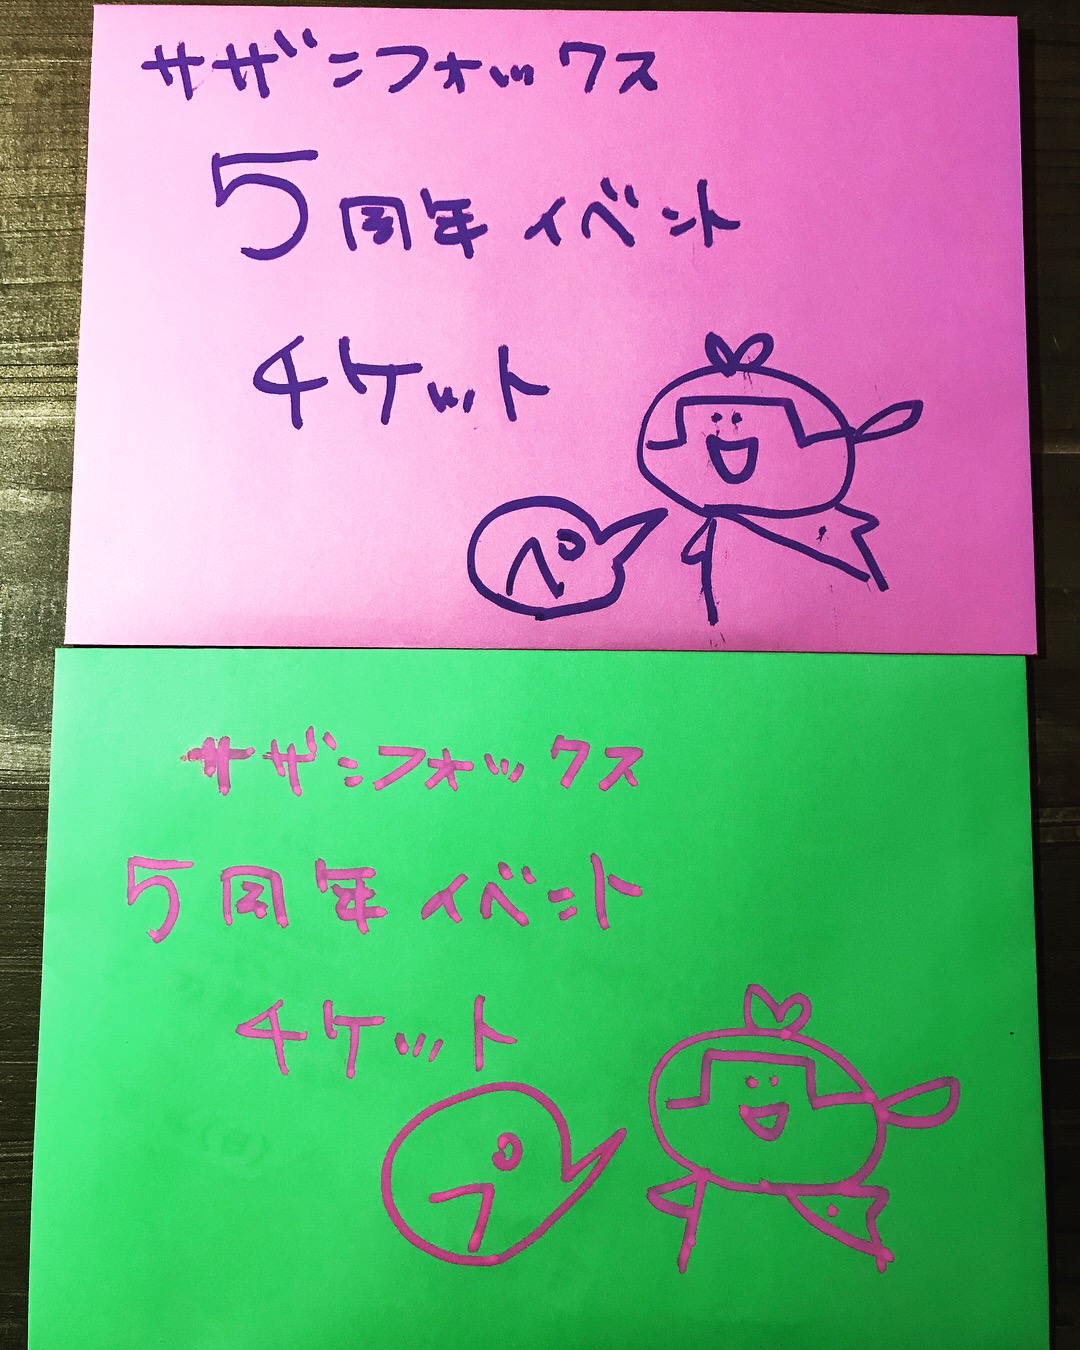 サザンフォックス
5周年イベント
チケット
ペ
サザンフォックス
5周年イベント
チケット
プ